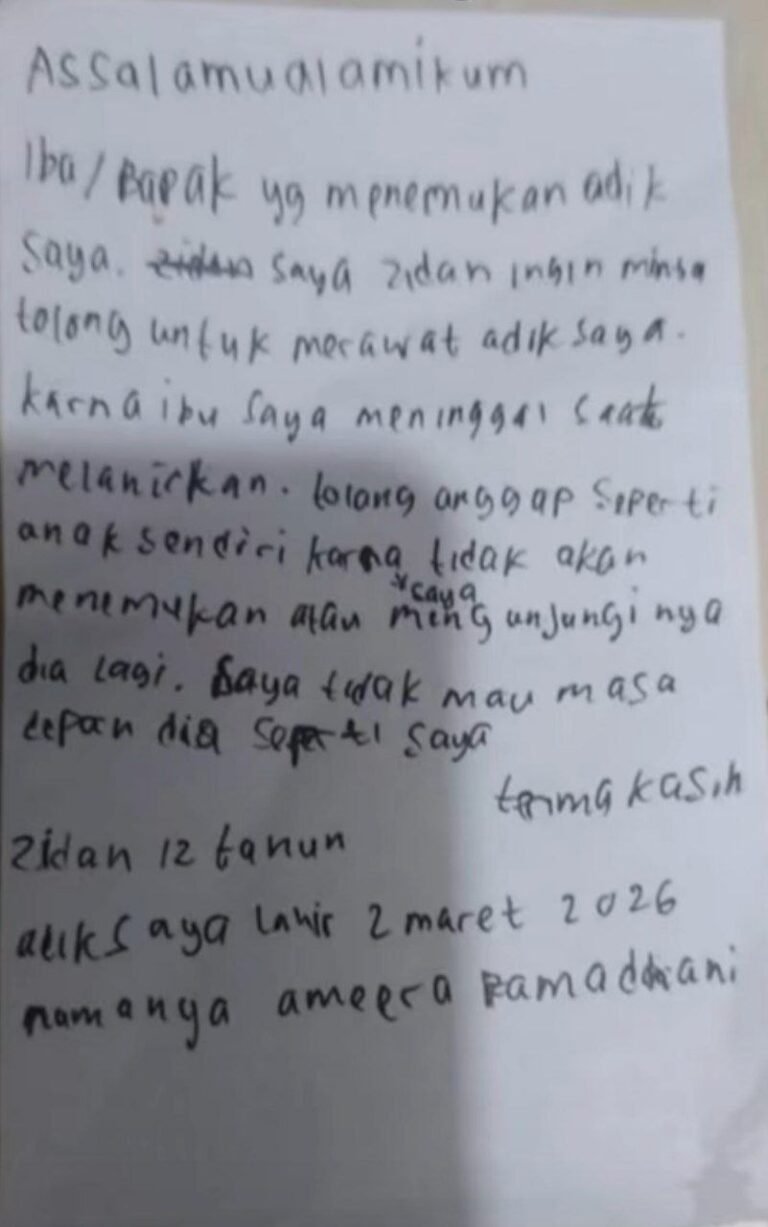 Assalamualamikum
Iba/Bapak yg menemukan adik
saya. zidan saya zidan ingin minsa
tolong untuk merawat adik saya.
karna ibu saya meninggal saat
melanirkan. tolong anggap seperti
anak sendiri karna tidak akan
*saya
menemukan atau mengunjungi nya
dia lagi. Saya tidak mau masa
depan dia seperti saya
terima kasih
Zidan 12 tahun
adik saya lahir 2 maret 2026
namanya ameera Ramaddhani